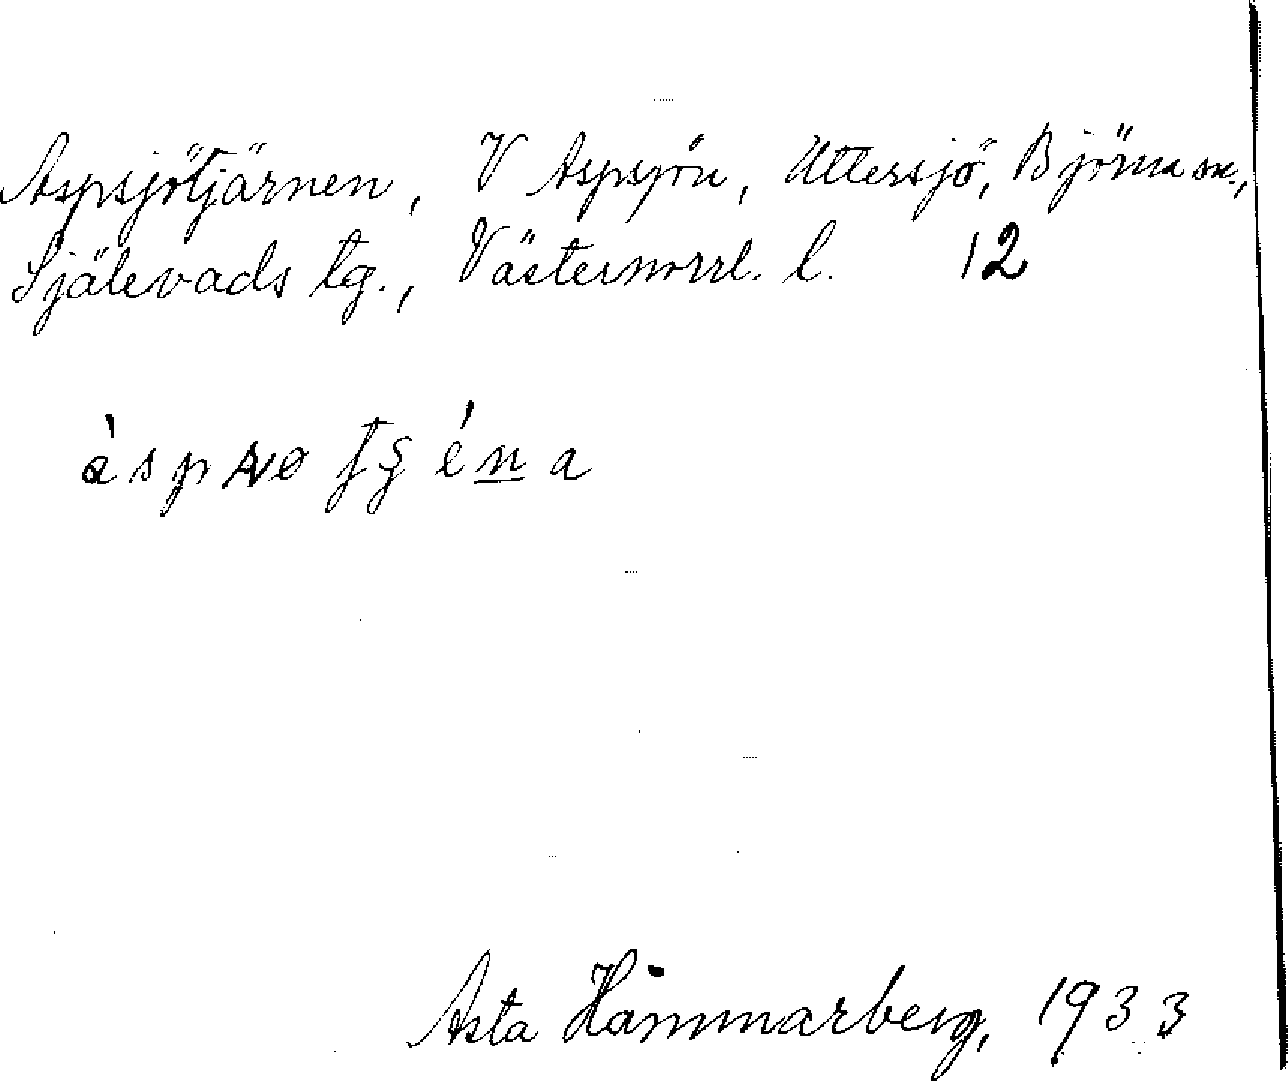 Aspsjötjärnen, V Aspsjön, Uttersjö, Björna sn.,
Själevads tg., Västernorrl. l. 12
Asta Hammarberg, 1933